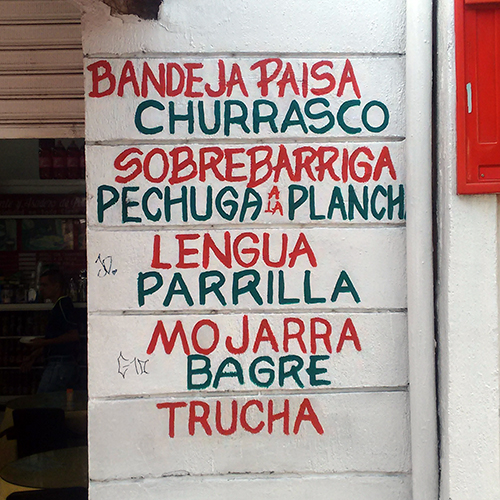 BANDEJA PAISA
CHURRASCO
SOBREBARRIGA
PECHUGA A LA PLANCH
LENGUA
PARRILLA
MOJARRA
BAGRE
TRUCHA